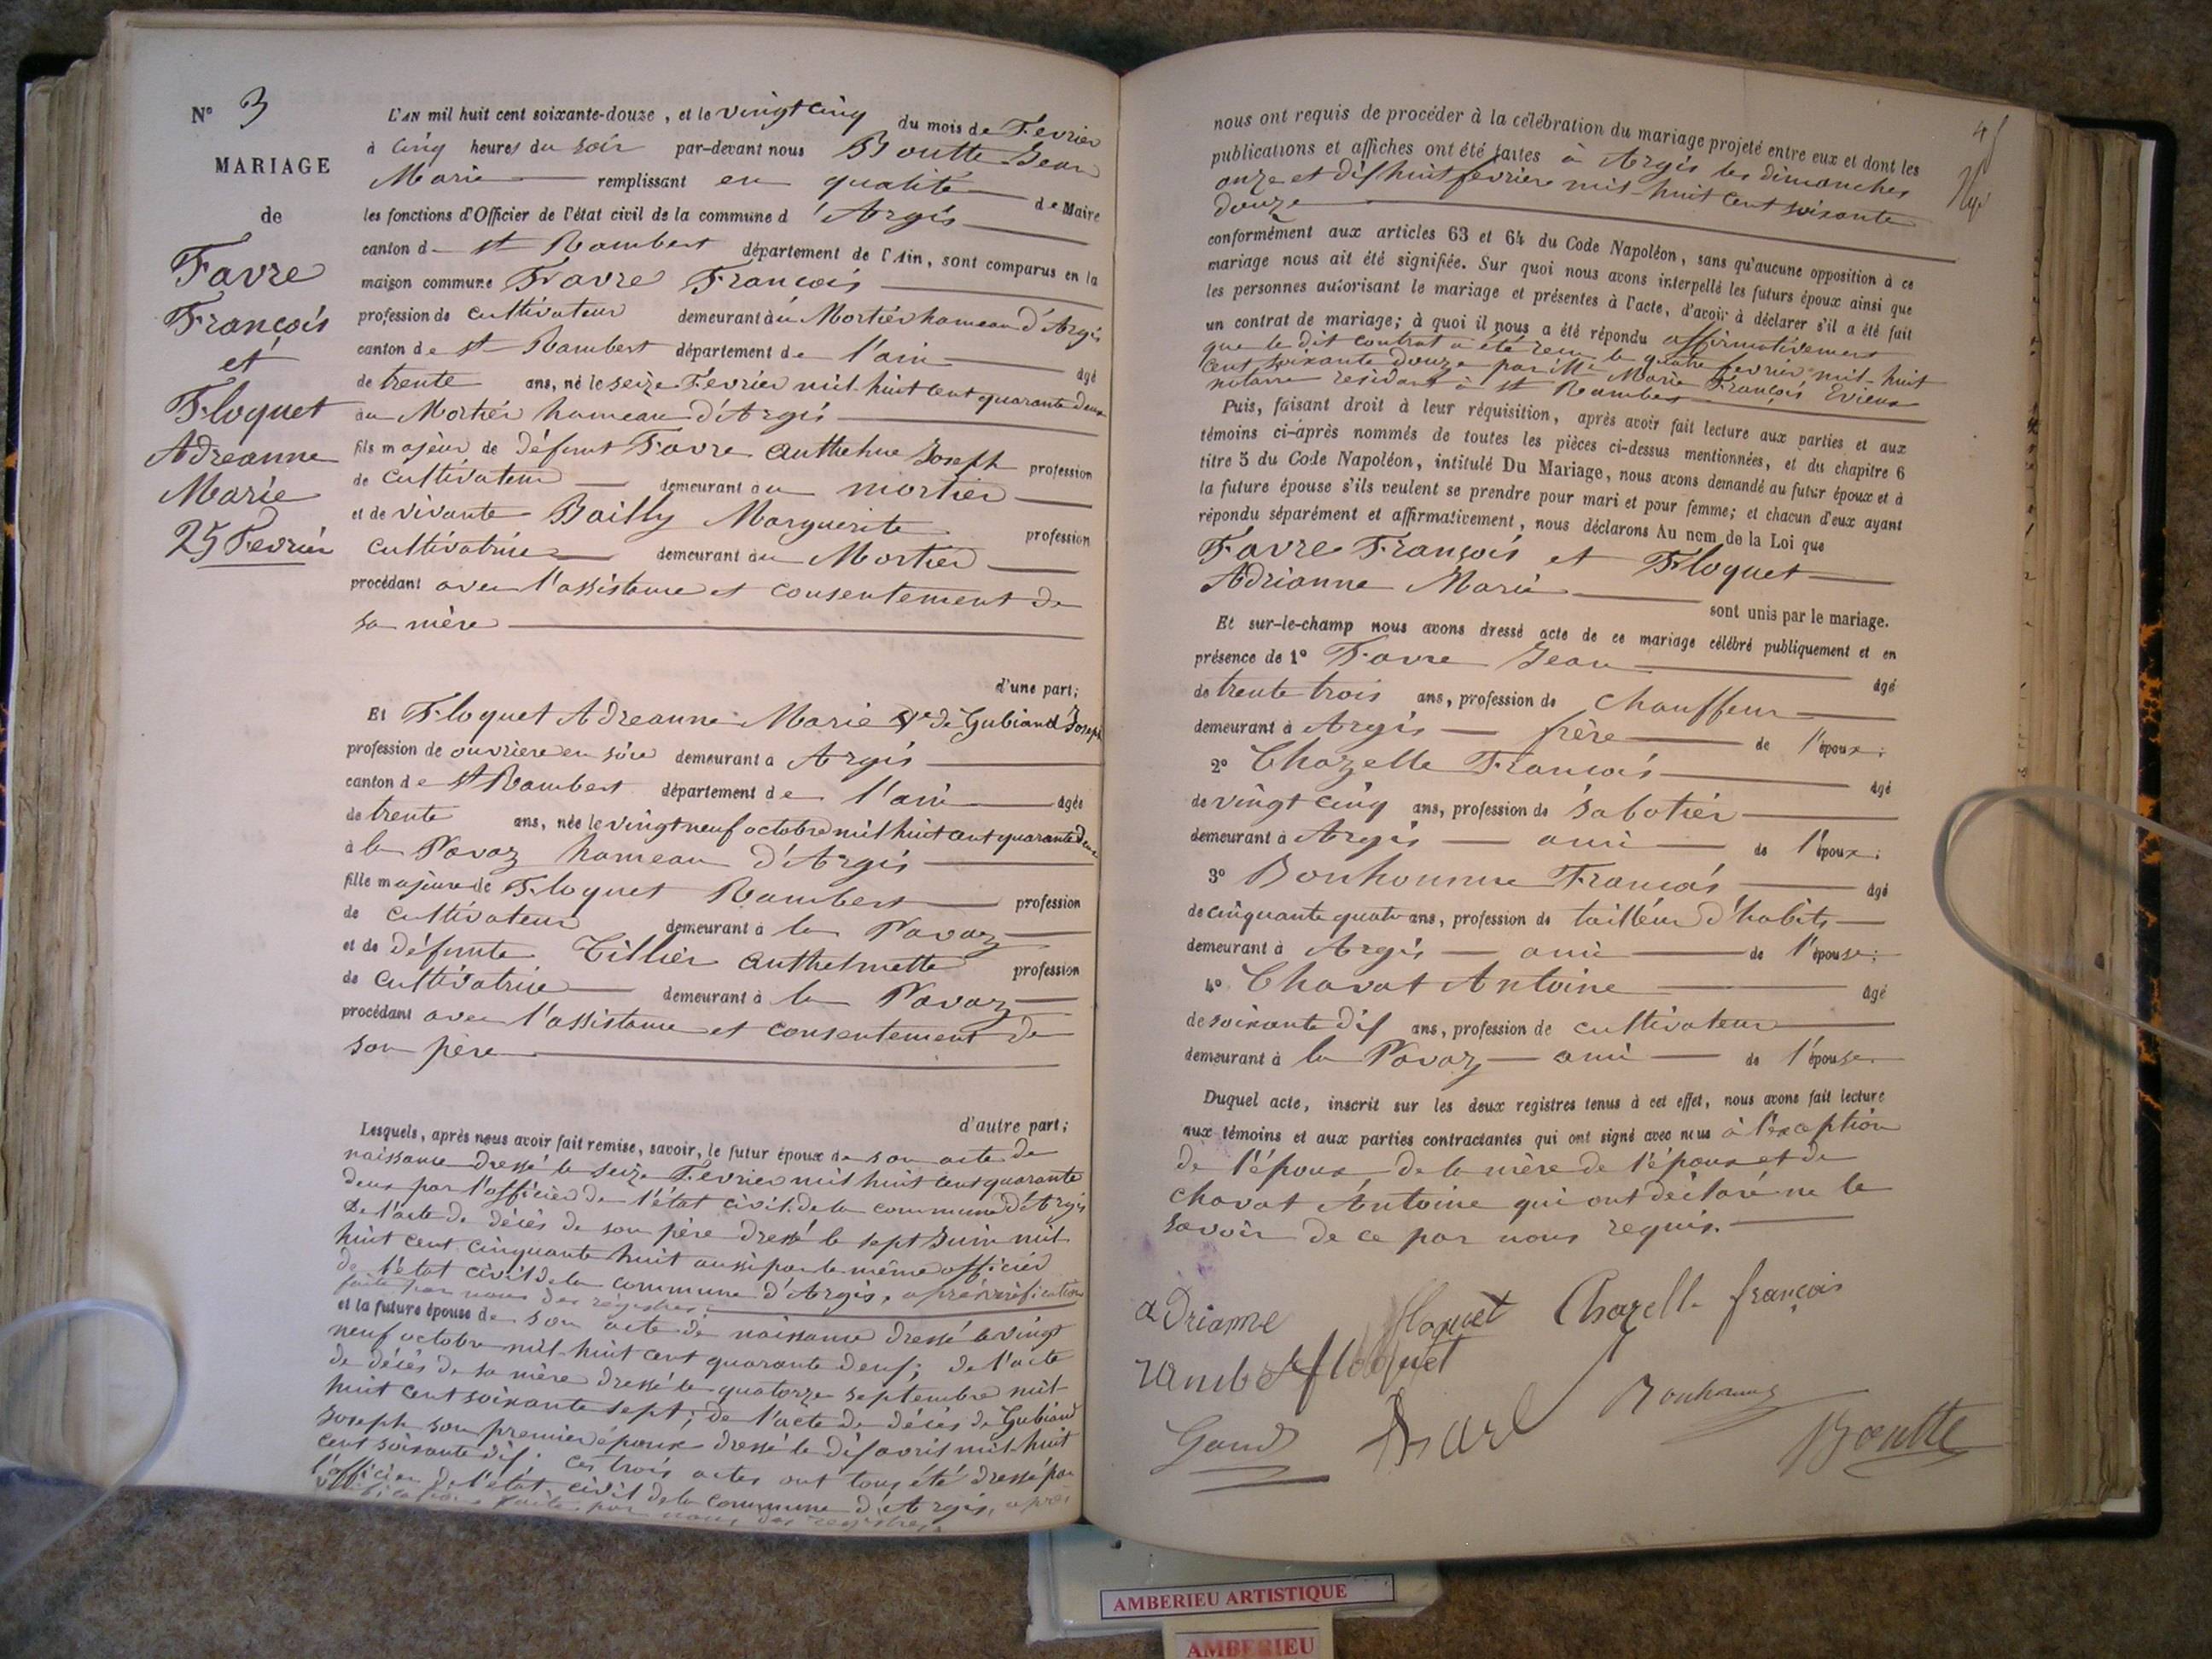 N° 3
MARIAGE
de
Favre
François
et
Floquet
Adreanne
Marie
25 Fevrier
L'AN mil huit cent soixante-douze, et le vingt cinq du mois de Fevrier
à cinq heures du soir par-devant nous Boutte Jean
Marie remplissant en qualité de Maire
les fonctions d'Officier de l'état civil de la commune d'Argis
canton de st Rambert département de l'Ain, sont comparus en la
maison commune Favre François
profession de cultivateur demeurant au Mortier hameau d'Argis
canton de st Rambert département de l'ain âgé
de trente ans, né le seize Fevrier mil huit cent quarante deux
au Mortier hameau d'Argis
fils majeur de défunt Favre Anthelme Joseph profession
de cultivateur demeurant au mortier
et de vivante Bailly Marguerite profession
cultivatrice demeurant au Mortier
procédant avec l'assistance et consentement de
sa mère
d'une part;
Et Floquet Adreanne Marie Vve de Gubiand Joseph
profession de ouvrière en soie demeurant à Argis
canton de st Rambert département de l'ain âgée
de trente ans, née le vingt neuf octobre mil huit cent quarante deux
à la Pavaz hameau d'Argis
fille majeure de Floquet Rambert profession
de cultivateur demeurant à la Pavaz
et de défunte Tillier Anthelmette profession
de cultivatrice demeurant à la Pavaz
procédant avec l'assistance et consentement de
son père
d'autre part;
Lesquels, après nous avoir fait remise, savoir, le futur époux de son acte de
naissance dressé le seize Fevrier mil huit cent quarante
deux par l'officier de l'état civil de la commune d'Argis
De l'acte de décès de son père dressé le sept Juin mil
huit cent cinquante huit aussi par le même officier
de l'état civil de la commune d'Argis, après vérification
faite par nous des registres.
et la future épouse de son acte de naissance dressé le vingt
neuf octobre mil-huit cent quarante deux; de l'acte
de décès de sa mère dressé le quatorze septembre mil
huit cent soixante sept; de l'acte de décès de Gubiand
Joseph son premier époux dressé le dix avril mil-huit
cent soixante dix; ces trois actes ont tous été dressé par
l'officier de l'état civil de la commune d'Argis, après
vérification faite par nous des registres.
45
nous ont requis de procéder à la célébration du mariage projeté entre eux et dont les
publications et affiches ont été faites à Argis les dimanches
onze et dix huit fevrier mil-huit cent soixante
douze
conformément aux articles 63 et 64 du Code Napoléon, sans qu'aucune opposition à ce
mariage nous ait été signifiée. Sur quoi nous avons interpellé les futurs époux ainsi que
les personnes autorisant le mariage et présentes à l'acte, d'avoir à déclarer s'il a été fait
un contrat de mariage; à quoi il nous a été répondu affirmativement
que le dit contrat a été reçu le quatre fevrier mil-huit
cent soixante douze par Me Marie François Evieux
notaire résidant à st Rambert
Puis, faisant droit à leur réquisition, après avoir fait lecture aux parties et aux
témoins ci-après nommés de toutes les pièces ci-dessus mentionnées, et du chapitre 6
titre 5 du Code Napoléon, intitulé Du Mariage, nous avons demandé au futur époux et à
la future épouse s'ils veulent se prendre pour mari et pour femme; et chacun d'eux ayant
répondu séparément et affirmativement, nous déclarons Au nom de la Loi que
Favre François et Floquet
Adrianne Marie sont unis par le mariage.
Et sur-le-champ nous avons dressé acte de ce mariage célébré publiquement et en
présence de 1° Favre Jean âgé
de trente trois ans, profession de chauffeur
demeurant à Argis frère de l'époux;
2° Chazelle François âgé
de vingt cinq ans, profession de sabotier
demeurant à Argis ami de l'époux;
3° Bonhomme François âgé
de cinquante quatre ans, profession de tailleur d'habits
demeurant à Argis ami de l'épouse;
4° Chavat Antoine âgé
de soixante dix ans, profession de cultivateur
demeurant à la Pavaz ami de l'épouse
Duquel acte, inscrit sur les deux registres tenus à cet effet, nous avons fait lecture
aux témoins et aux parties contractantes qui ont signé avec nous à l'exception
de l'époux, de la mère de l'époux et de
chavat Antoine qui ont déclaré ne le
savoir de ce par nous requis.
adrianne floquet Chazelle françois
rambert floquet
Bonhomme
Boutte
AMBERIEU ARTISTIQUE
AMBERIEU